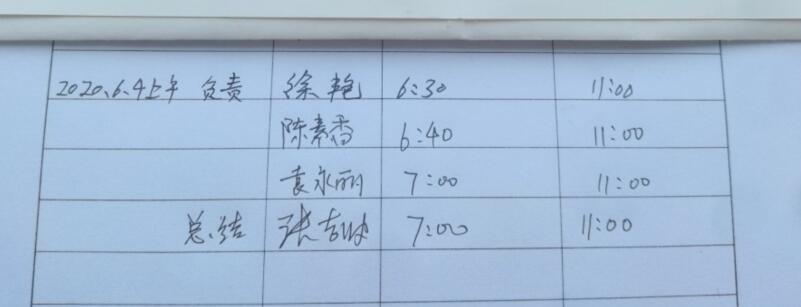 2020.6.4上午 负责 徐艳 6:30 11:00
陈素香 6:40 11:00
袁永丽 7:00 11:00
总结 张 7:00 11:00